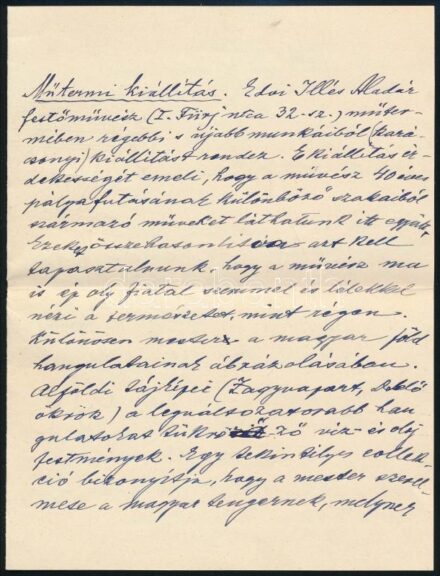 Műtermi kiállítás. Edvi Illés Aladár
festőművész (I. Fürj utca 32. sz.) műter-
mében régebbi s újabb munkáiból (kará-
csonyi) kiállítást rendez. E kiállítás ér-
dekességét emeli, hogy a művész 40 éves
pályafutásának különböző szakaiból
származó műveket láthatunk itt együtt.
Ezek összehasonlítása azt kell
tapasztalnunk, hogy a művész ma
is ép oly fiatal szemmel és lélekkel
nézi a természetet, mint régen.
Különösen mestere a magyar föld
hangulatainak ábrázolásában.
Alföldi tájképei (Zagyvapart, Delelő
ökrök) a legváltozatosabb han-
gulatokat tükröző víz- és olaj
festmények. Egy tekintélyes collek-
ció bizonyítja, hogy a mester szerel-
mese a magyar tengernek, melynek